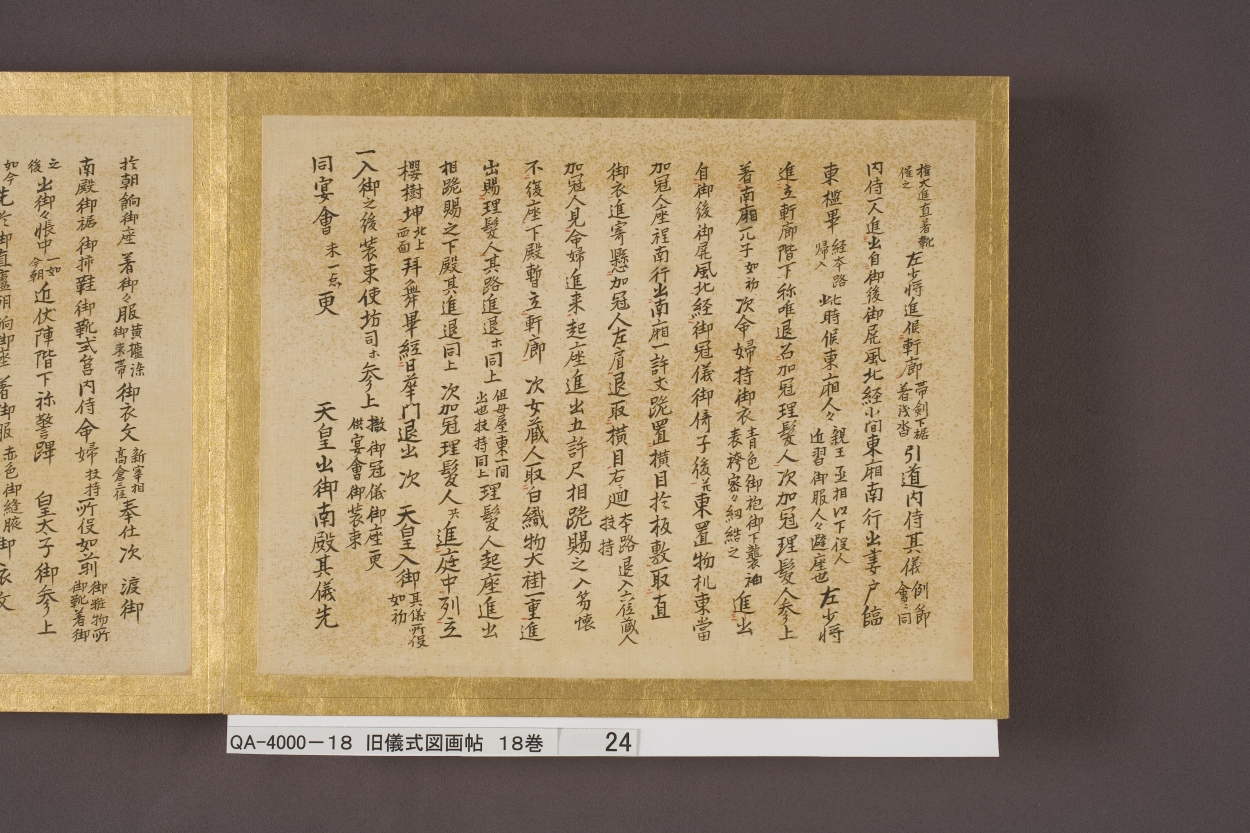 権大進直着靴
催之
左少将進候軒廊
帯剣下裾
着浅沓
引道内侍其儀
例節
會〻同
内侍一人進出自御後御屏風北経小間東廂南行出妻戸臨
東檻畢
経本路
歸入
此時候東廂人々
親王並相以下役人
近習御服人々避座也
左少将
進立軒廊階下称唯退召加冠理髪人次加冠理髪人参上
着南廂兀子
如初
次命婦持御衣
青色御袍御下襲袖
表袴密々紐結之
進出
自御後御屏風北経御冠儀御倚子後東置物机東當
加冠人座程南行出南廂一許丈跪置横目於板敷取直
御衣進寄懸加冠人左肩退取横目右廻
本路退入六位蔵人
扶持
加冠人見命婦進来起座進出五許尺相跪賜之入笏懐
不復座下殿暫立軒廊 次女蔵人取白織物大褂一重進
出賜理髪人其路進退ホ同上
但母屋東一間
出也扶持同上
理髪人起座進出
相跪賜之下殿其進退同上 次加冠理髪人共進庭中列立
櫻樹坤
北上
西面
拜舞畢経日華門退出 次 天皇入御
其儀所役
如初
一入御之後装束使坊司ホ参上
撤御冠儀御座更
供宴會御装束
同宴會
未一点
更 天皇出御南殿其儀先
於朝餉御座着御々服
黄櫨染
御束帯
御衣文
新宰相
高倉三位
奉仕次 渡御
南殿御裾御挿鞋御靴式筥内侍命婦
扶持
所役如前
御雑物所
御靴着御
之
後
出御々帳中
一如
今朝
近仗陣階下称警蹕 皇太子御参上
如今
先於御直廬朝餉御座着御服
赤色御縫腋
御衣文
QA-4000-18 旧儀式図画帖 18巻 24